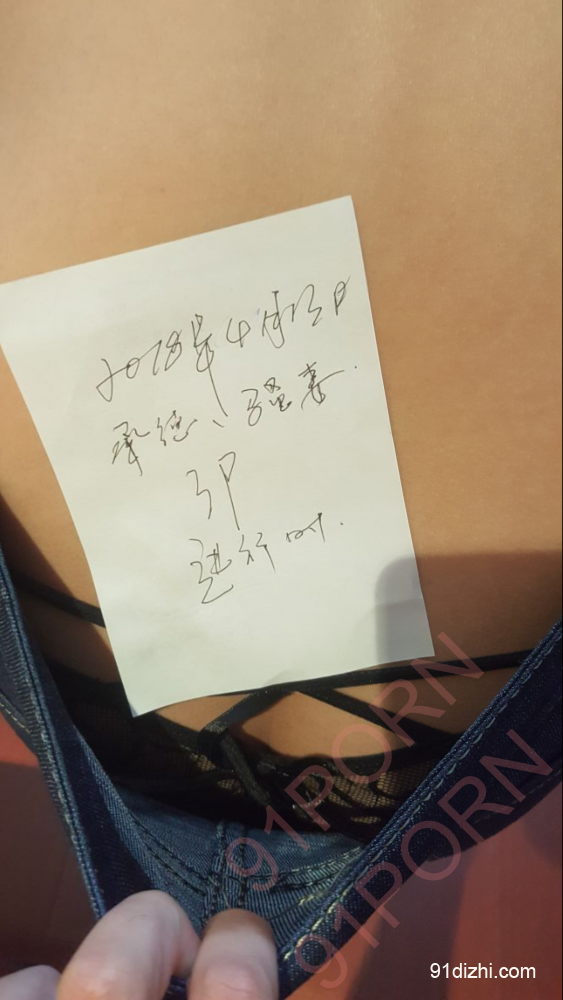 2018年4月 日
承德、骚妻.
3P
进行时.
91PORN
91PORN
91dizhi.com